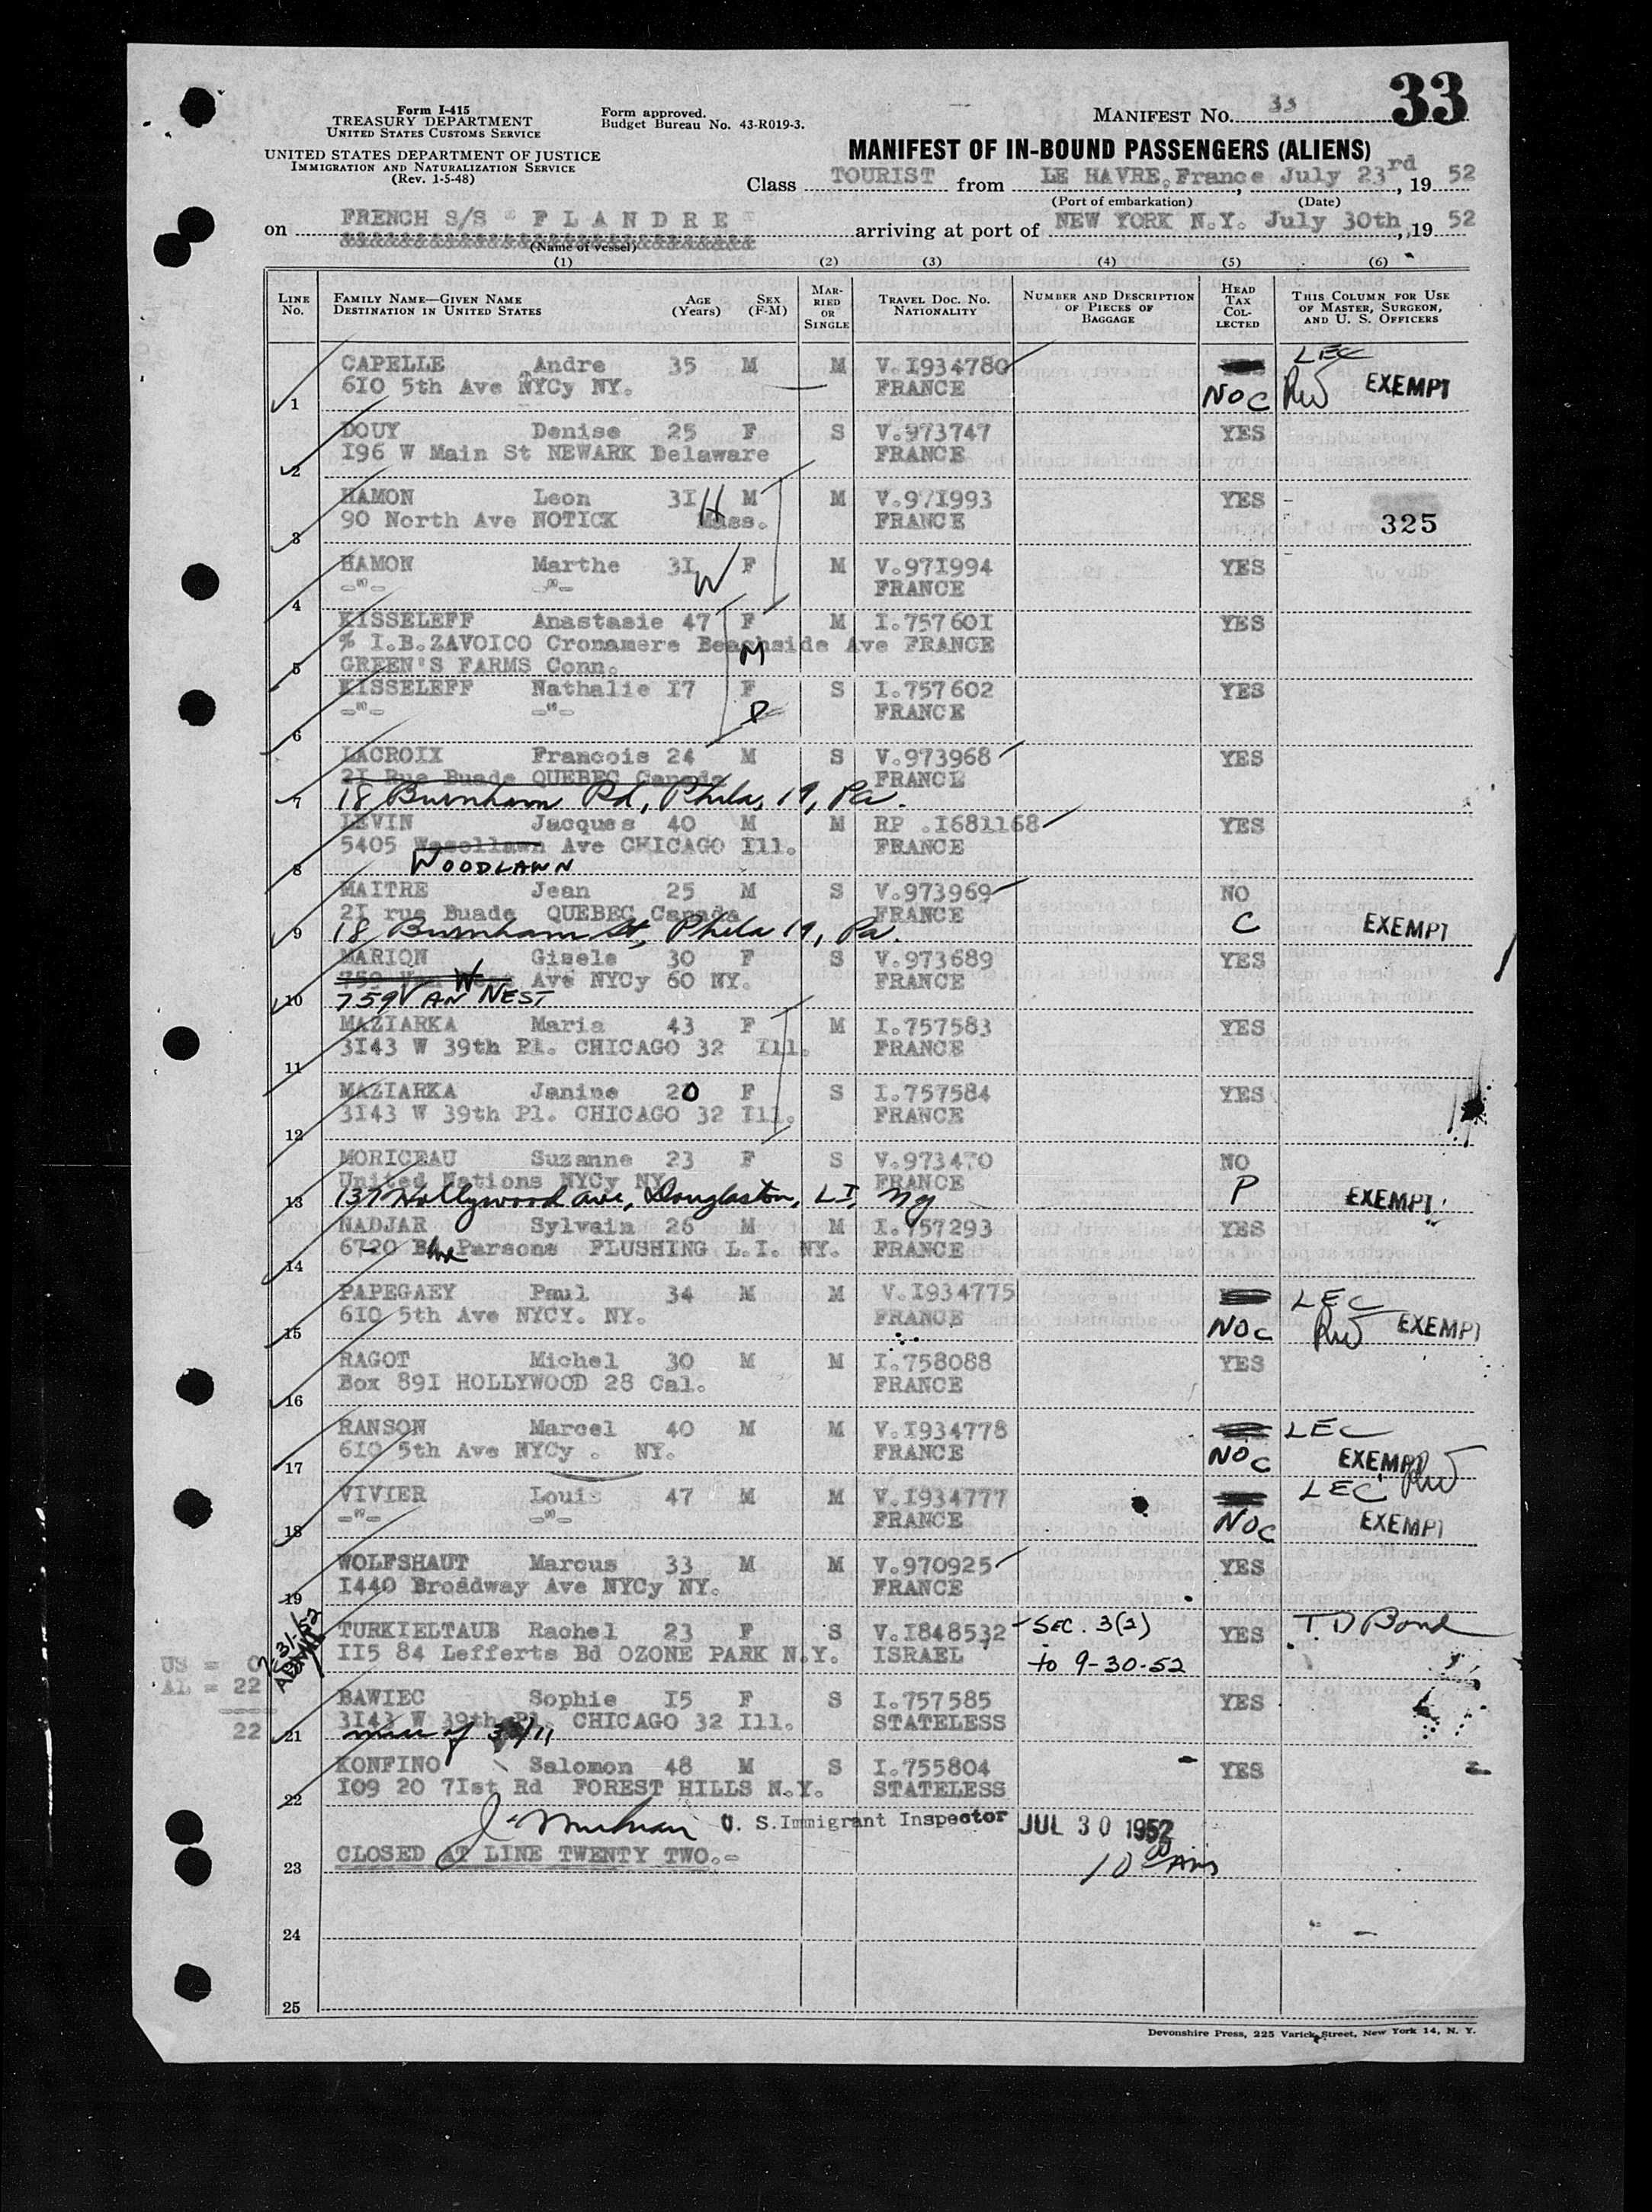 33
Form I-415
TREASURY DEPARTMENT
UNITED STATES CUSTOMS SERVICE
Form approved.
Budget Bureau No. 43-R019-3.
MANIFEST No. 33
UNITED STATES DEPARTMENT OF JUSTICE
IMMIGRATION AND NATURALIZATION SERVICE
(Rev. 1-5-48)
MANIFEST OF IN-BOUND PASSENGERS (ALIENS)
Class TOURIST from LE HAVRE, France, July 23rd, 19 52
(Port of embarkation) (Date)
on FRENCH S/S " F L A N D R E " arriving at port of NEW YORK N.Y. July 30th, 19 52
(Name of vessel)
(1) (2) (3) (4) (5) (6)
LINE No. FAMILY NAME—GIVEN NAME DESTINATION IN UNITED STATES AGE (Years) SEX (F-M) MARRIED OR SINGLE TRAVEL DOC. NO. NATIONALITY NUMBER AND DESCRIPTION OF PIECES OF BAGGAGE HEAD TAX COLLECTED THIS COLUMN FOR USE OF MASTER, SURGEON, AND U. S. OFFICERS
CAPELLE Andre 35 M M V.I934780 LEC
1 6I0 5th Ave NYCy NY. FRANCE NO C RW EXEMPT
DOUY Denise 25 F S V.973747 YES
2 I96 W Main St NEWARK Delaware FRANCE
HAMON Leon 3I H M M V.97I993 YES
3 90 North Ave NOTICK Mass. FRANCE 325
HAMON Marthe 3I W F M V.97I994 YES
4 -"- -"- FRANCE
KISSELEFF Anastasie 47 F M I.75760I YES
% I.B.ZAVOICO Cronamere Beachside Ave FRANCE M
5 GREEN'S FARMS Conn.
KISSELEFF Nathalie I7 F S I.757602 YES
6 -"- -"- D FRANCE
LACROIX Francois 24 M S V.973968 YES
2I Rue Buade QUEBEC Canada FRANCE
7 18 Burnham Rd, Phila, 19, Pa.
LEVIN Jacques 40 M M RP .I681168 YES
5405 Wasollawn Ave CHICAGO Ill. FRANCE
8 WOODLAWN
MAITRE Jean 25 M S V.973969 NO
2I rue Buade QUEBEC Canada FRANCE C EXEMPT
9 18 Burnham St, Phila 19, Pa.
MARION Gisele 30 F S V.973689 YES
759 Van West Ave NYCy 60 NY. FRANCE
10 759 VAN NEST
MAZIARKA Maria 43 F M I.757583 YES
11 3I43 W 39th Pl. CHICAGO 32 Ill. FRANCE
MAZIARKA Janine 20 F S I.757584 YES
12 3I43 W 39th Pl. CHICAGO 32 Ill. FRANCE
MORICEAU Suzanne 23 F S V.973470 NO
United Nations NYCy NY FRANCE P EXEMPT
13 137 Hollywood Ave, Douglaston, LI, Ny
NADJAR Sylvain 26 M M I.757293 YES
14 6720 Parsons FLUSHING L.I. NY. FRANCE
PAPEGAEY Paul 34 M M V.I934775 LEC
15 6I0 5th Ave NYCY. NY. FRANCE NO C RW EXEMPT
RAGOT Michel 30 M M I.758088 YES
16 Box 89I HOLLYWOOD 28 Cal. FRANCE
RANSON Marcel 40 M M V.I934778 LEC
17 6I0 5th Ave NYCy . NY. FRANCE NO C EXEMPT RW
VIVIER Louis 47 M M V.I934777 LEC
18 -"- -"- FRANCE NO C EXEMPT
WOLFSHAUT Marcus 33 M M V.970925 YES
19 I440 Broadway Ave NYCy NY. FRANCE
7-31-52 ADMIT TURKIELTAUB Rachel 23 F S V.I848532 SEC. 3(2) YES T D Bond
II5 84 Lefferts Bd OZONE PARK N.Y. ISRAEL to 9-30-52
US = 0
AL = 22
22
BAWIEC Sophie I5 F S I.757585 YES
3I43 W 39th Pl. CHICAGO 32 Ill. STATELESS
21 niece of 33/11
KONFINO Salomon 48 M S I.755804 YES
22 I09 20 7Ist Rd FOREST HILLS N.Y. STATELESS
U. S. Immigrant Inspector JUL 30 1952
23 CLOSED AT LINE TWENTY TWO.- 10 00 AM
24
25
Devonshire Press, 225 Varick Street, New York 14, N. Y.